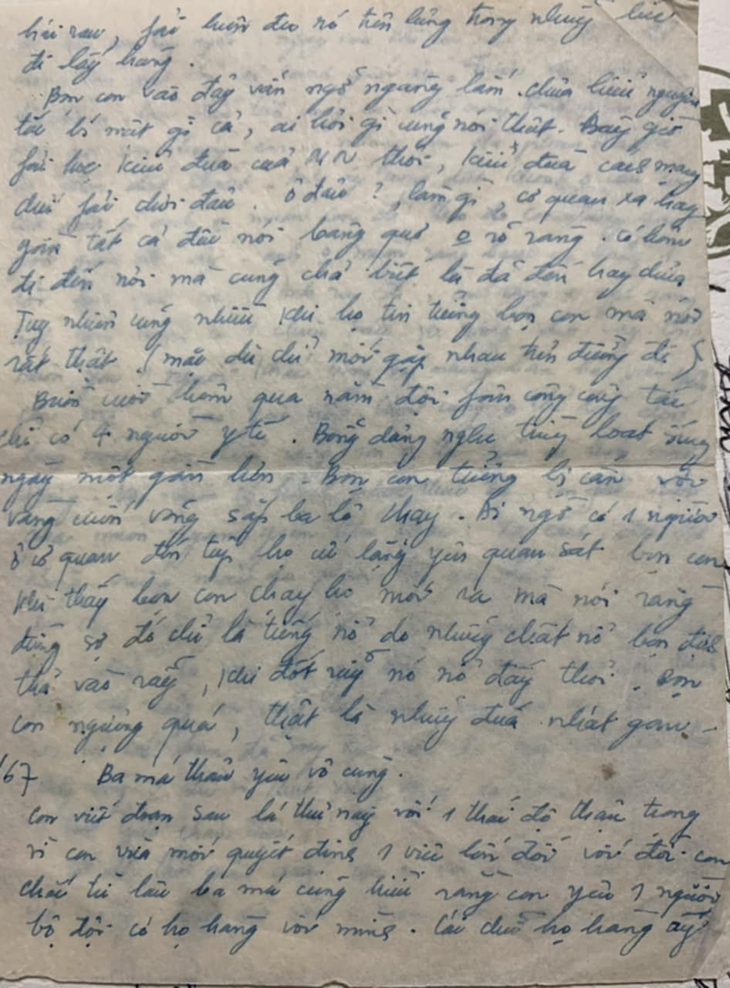 hái rau, fải luôn đeo nó trên lưng trong những lúc
đi lấy hàng.
Bọn con vào đây vẫn ngỡ ngàng lắm. chưa hiểu nguyên
tắc bí mật gì cả, ai hỏi gì cũng nói thật. Bây giờ
fải học kiểu đùa của thôi, kiểu đùa cách mạng
chứ fải chơi đâu. Ở đâu?, làm gì, cơ quan xa hay
gần tất cả đều nói bâng quơ o rõ ràng. có hôm
đi đến nơi mà cũng chả biết là đã đến hay chưa
Tuy nhiên cũng nhiều khi họ tin tưởng bọn con mà nói
rất thật (mặc dù chỉ mới gặp nhau trên đường đi)
Buồn cười hôm qua nằm đợi fân công công tác
chỉ có 4 người y tế. Bỗng dưng nghe từng loạt súng
ngày một gần lên. Bọn con tưởng bị càn vội
vàng cuốn võng sắp ba lô chạy. Ai ngờ có 1 người
ở cơ quan đến tiếp họ cứ lặng yên quan sát bọn con
khi thấy bọn con chạy họ mới ra mà nói rằng
đừng sợ đó chỉ là tiếng nổ do những chất nổ bọn địch
thả vào rẫy, khi đốt rẫy nó nổ đấy thôi. Bọn
con ngượng quá, thật là những đứa nhát gan.
/67 Ba má thân yêu vô cùng.
Con viết đoạn sau lá thư này với 1 thái độ thận trọng
vì con vừa mới quyết định 1 việc lớn đối với đời con
chắc từ lâu ba má cũng hiểu rằng con yêu 1 người
bộ đội có họ hàng với mình. Cái chữ họ hàng ấy